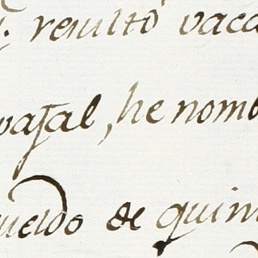 resultó vaca
vajal, he nomb
ueldo de quin